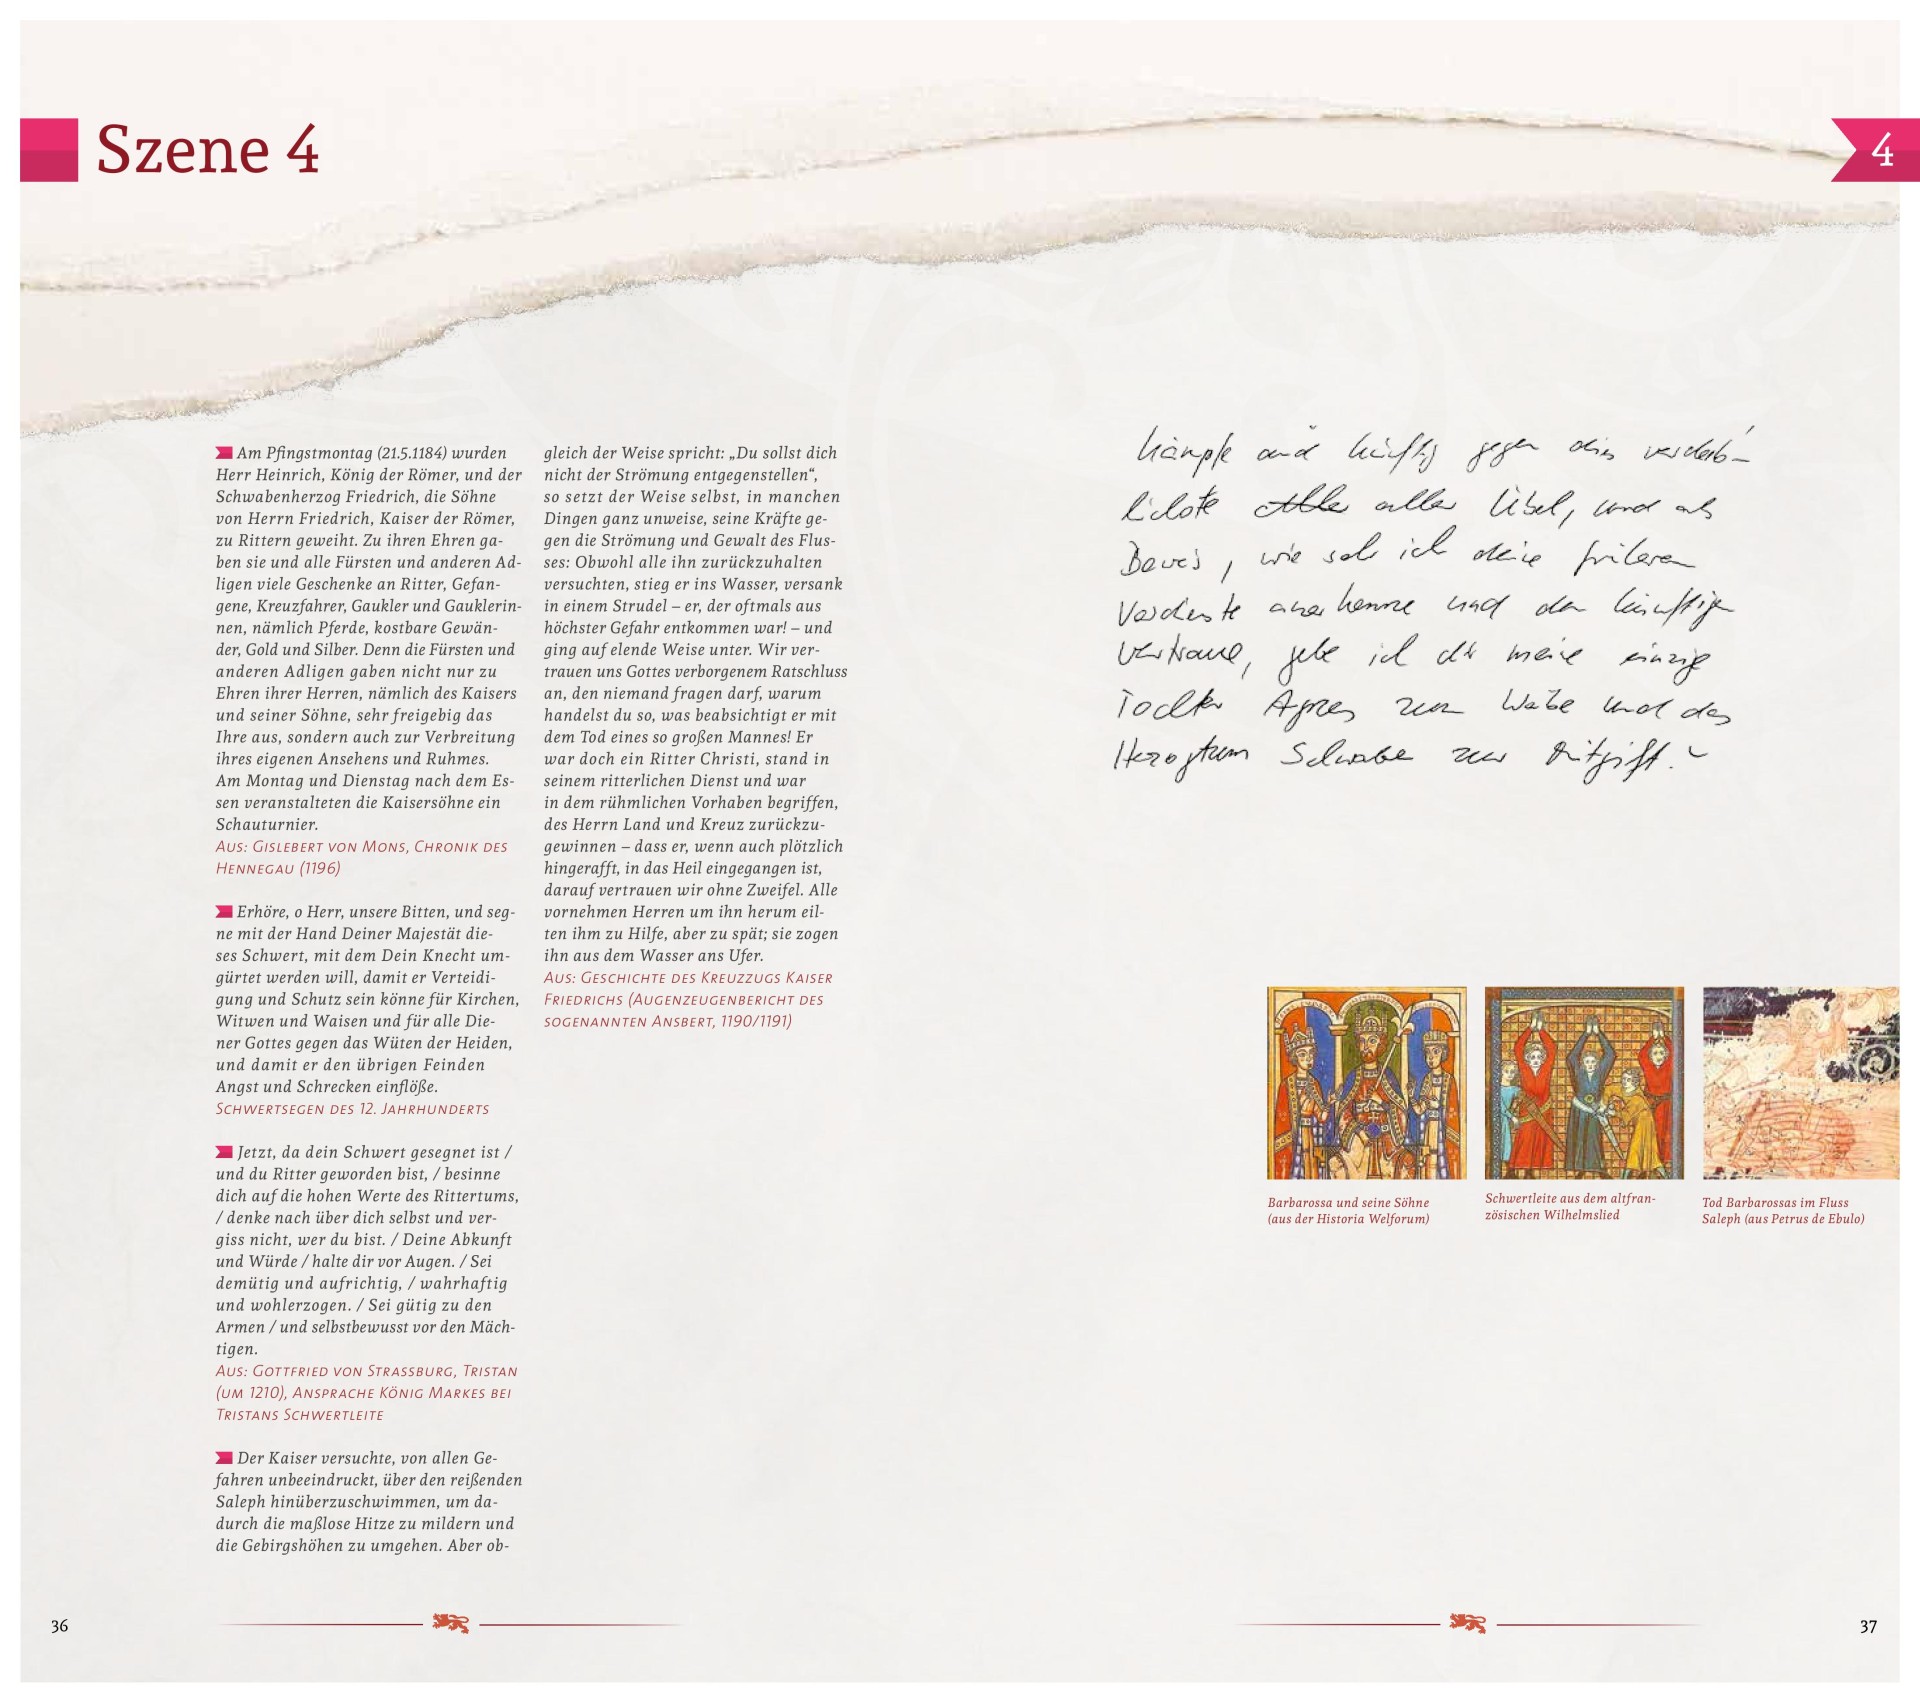 Szene 4
4
Am Pfingstmontag (21.5.1184) wurden
Herr Heinrich, König der Römer, und der
Schwabenherzog Friedrich, die Söhne
von Herrn Friedrich, Kaiser der Römer,
zu Rittern geweiht. Zu ihren Ehren ga-
ben sie und alle Fürsten und anderen Ad-
ligen viele Geschenke an Ritter, Gefan-
gene, Kreuzfahrer, Gaukler und Gauklerin-
nen, nämlich Pferde, kostbare Gewän-
der, Gold und Silber. Denn die Fürsten und
anderen Adligen gaben nicht nur zu
Ehren ihrer Herren, nämlich des Kaisers
und seiner Söhne, sehr freigebig das
Ihre aus, sondern auch zur Verbreitung
ihres eigenen Ansehens und Ruhmes.
Am Montag und Dienstag nach dem Es-
sen veranstalteten die Kaisersöhne ein
Schauturnier.
Aus: Gislebert von Mons, Chronik des
Hennegau (1196)
Erhöre, o Herr, unsere Bitten, und seg-
ne mit der Hand Deiner Majestät die-
ses Schwert, mit dem Dein Knecht um-
gürtet werden will, damit er Verteidi-
gung und Schutz sein könne für Kirchen,
Witwen und Waisen und für alle Die-
ner Gottes gegen das Wüten der Heiden,
und damit er den übrigen Feinden
Angst und Schrecken einflöße.
Schwertsegen des 12. Jahrhunderts
Jetzt, da dein Schwert gesegnet ist /
und du Ritter geworden bist, / besinne
dich auf die hohen Werte des Rittertums,
/ denke nach über dich selbst und ver-
giss nicht, wer du bist. / Deine Abkunft
und Würde / halte dir vor Augen. / Sei
demütig und aufrichtig, / wahrhaftig
und wohlerzogen. / Sei gütig zu den
Armen / und selbstbewusst vor den Mäch-
tigen.
Aus: Gottfried von Strassburg, Tristan
(um 1210), Ansprache König Markes bei
Tristans Schwertleite
Der Kaiser versuchte, von allen Ge-
fahren unbeeindruckt, über den reißenden
Saleph hinüberzuschwimmen, um da-
durch die maßlose Hitze zu mildern und
die Gebirgshöhen zu umgehen. Aber ob-
gleich der Weise spricht: „Du sollst dich
nicht der Strömung entgegenstellen“,
so setzt der Weise selbst, in manchen
Dingen ganz unweise, seine Kräfte ge-
gen die Strömung und Gewalt des Flus-
ses: Obwohl alle ihn zurückzuhalten
versuchten, stieg er ins Wasser, versank
in einem Strudel – er, der oftmals aus
höchster Gefahr entkommen war! – und
ging auf elende Weise unter. Wir ver-
trauen uns Gottes verborgenem Ratschluss
an, den niemand fragen darf, warum
handelst du so, was beabsichtigt er mit
dem Tod eines so großen Mannes! Er
war doch ein Ritter Christi, stand in
seinem ritterlichen Dienst und war
in dem rühmlichen Vorhaben begriffen,
des Herrn Land und Kreuz zurückzu-
gewinnen – dass er, wenn auch plötzlich
hingerafft, in das Heil eingegangen ist,
darauf vertrauen wir ohne Zweifel. Alle
vornehmen Herren um ihn herum eil-
ten ihm zu Hilfe, aber zu spät; sie zogen
ihn aus dem Wasser ans Ufer.
Aus: Geschichte des Kreuzzugs Kaiser
Friedrichs (Augenzeugenbericht des
sogenannten Ansbert, 1190/1191)
kämpfe auch künftig gegen dies verderb-
lichste aller Übel, und als
Beweis, wie sehr ich deine früheren
Verdienste anerkenne und den künftigen
vertraue, gebe ich dir meine einzige
Tochter Agnes zum Weibe und das
Herzogtum Schwaben zur Mitgift.
Barbarossa und seine Söhne
(aus der Historia Welforum)
Schwertleite aus dem altfran-
zösischen Wilhelmslied
Tod Barbarossas im Fluss
Saleph (aus Petrus de Ebulo)
36
37